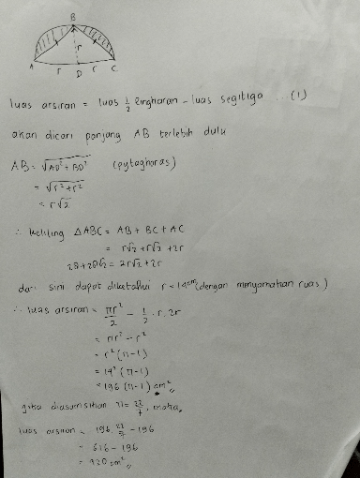 B
A r D r C
luas arsiran = luas 1/2 lingkaran - luas segitiga ...(1)
akan dicari panjang AB terlebih dulu
AB = √AD² + BD² (pytaghoras)
= √r² + r²
= r√2
∴ keliling ΔABC = AB + BC + AC
= r√2 + r√2 + 2r
28 + 28√2 = 2r√2 + 2r
dari sini dapat diketahui r = 14 cm (dengan menyamakan ruas)
∴ luas arsiran = πr²/2 - 1/2 . r. 2r
= πr² - r²
= r² (π-1)
= 14² (π-1)
= 196 (π-1) cm²
jika diasumsikan π = 22/7, maka,
luas arsiran = 196 22/7 - 196
= 616 - 196
= 420 cm²